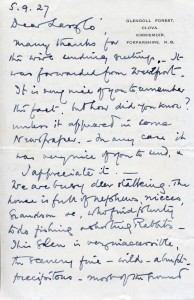 5.9.27
GLENDOLL FOREST,
CLOVA,
KIRRIEMUIR,
FORFARSHIRE, N.B.
Dear Laszlo'
many thanks for
the wire sending greetings. It
was forwarded from
It is very nice of you to remember
the fact - but how did you know?
unless it appeared in some
Newspaper. - In any case it
was very nice of you to send, &
I appreciate it. -
We are busy deer stalking. The
house is full of nephews, nieces,
Grandson &c, who find plenty
to do fishing & shooting Rabbits -
This Glen is very inaccessible,
the scenery fine - wild - abrupt -
precipitous - most of the ground